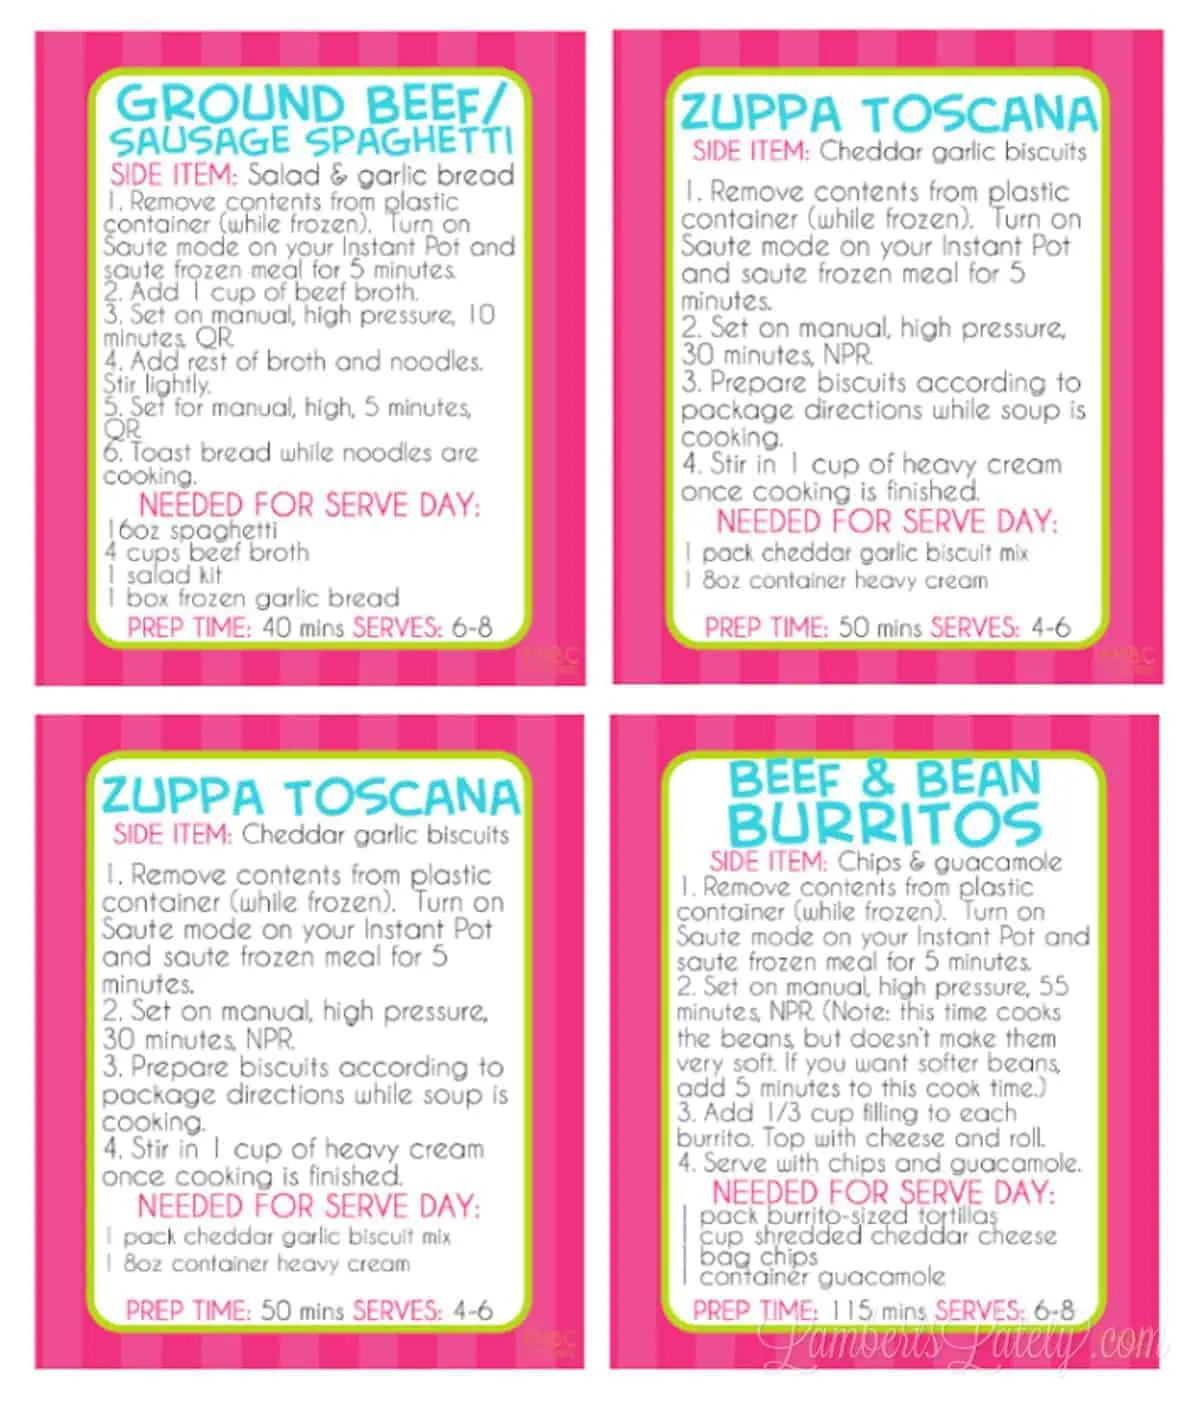 GROUND BEEF/
SAUSAGE SPAGHETTI
SIDE ITEM: Salad & garlic bread
1. Remove contents from plastic
container (while frozen). Turn on
Saute mode on your Instant Pot and
saute frozen meal for 5 minutes.
2. Add 1 cup of beef broth.
3. Set on manual, high pressure, 10
minutes, QR.
4. Add rest of broth and noodles.
Stir lightly.
5. Set for manual, high, 5 minutes,
QR
6. Toast bread while noodles are
cooking.
NEEDED FOR SERVE DAY:
16oz spaghetti
4 cups beef broth
1 salad kit
1 box frozen garlic bread
PREP TIME: 40 mins SERVES: 6-8
ZUPPA TOSCANA
SIDE ITEM: Cheddar garlic biscuits
1. Remove contents from plastic
container (while frozen). Turn on
Saute mode on your Instant Pot
and saute frozen meal for 5
minutes.
2. Set on manual, high pressure,
30 minutes, NPR.
3. Prepare biscuits according to
package directions while soup is
cooking.
4. Stir in 1 cup of heavy cream
once cooking is finished.
NEEDED FOR SERVE DAY:
1 pack cheddar garlic biscuit mix
1 8oz container heavy cream
PREP TIME: 50 mins SERVES: 4-6
ZUPPA TOSCANA
SIDE ITEM: Cheddar garlic biscuits
1. Remove contents from plastic
container (while frozen). Turn on
Saute mode on your Instant Pot
and saute frozen meal for 5
minutes.
2. Set on manual, high pressure,
30 minutes, NPR.
3. Prepare biscuits according to
package directions while soup is
cooking.
4. Stir in 1 cup of heavy cream
once cooking is finished.
NEEDED FOR SERVE DAY:
1 pack cheddar garlic biscuit mix
1 8oz container heavy cream
PREP TIME: 50 mins SERVES: 4-6
BEEF & BEAN
BURRITOS
SIDE ITEM: Chips & guacamole
1. Remove contents from plastic
container (while frozen). Turn on
Saute mode on your Instant Pot and
saute frozen meal for 5 minutes.
2. Set on manual, high pressure, 55
minutes, NPR. (Note: this time cooks
the beans, but doesn't make them
very soft. If you want softer beans,
add 5 minutes to this cook time.)
3. Add 1/3 cup filling to each
burrito. Top with cheese and roll.
4. Serve with chips and guacamole.
NEEDED FOR SERVE DAY:
1 pack burrito-sized tortillas
1 cup shredded cheddar cheese
1 bag chips
1 container guacamole
PREP TIME: 115 mins SERVES: 6-8
LambertsLately.com